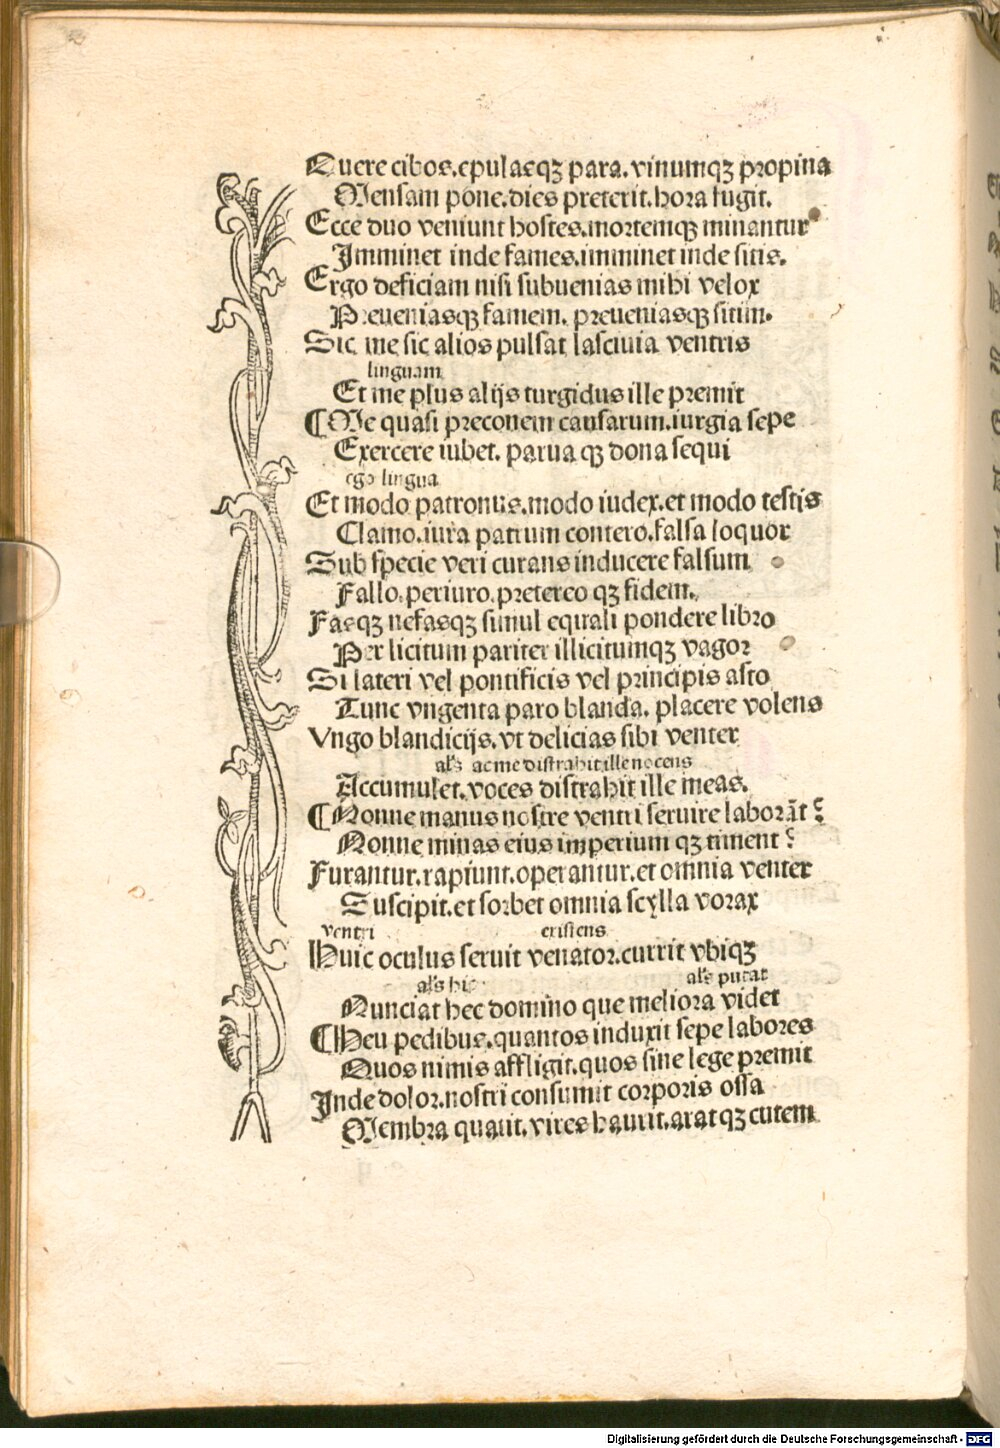 Quere cibos.epulasqꝫ para.vinumqꝫ propina
Mensam pone.dies preterit.hora fugit.
Ecce duo veniunt hostes.mortemqꝫ minantur
Imminet inde fames.imminet inde sitis.
Ergo deficiam nisi subuenias mihi velox
Preueniasqꝫ famem. preueniasqꝫ sitim.
Sic me sic alios pulsat lasciuia ventris
linguam
Et me plus alijs turgidus ille premit
¶Me quasi preconem causarum.iurgia sepe
Exercere iubet. parua qꝫ dona sequi
ego lingua
Et modo patronus.modo iudex.et modo testis
Clamo.iura patrum contero.falsa loquor
Sub specie veri curans inducere falsum
Fallo.periuro.pretereo qꝫ fidem.
Fasqꝫ nefasqꝫ simul equali pondere libro
Per licitum pariter illicitumqꝫ vagor
Si lateri vel pontificis vel principis asto
Tunc vngenta paro blanda. placere volens
Vngo blandicijs.vt delicias sibi venter
al's ac me distrahit ille nocens
Accumulet.voces distrahit ille meas.
¶Nonne manus nostre ventri seruire laborāt?
Nonne minas eius imperium qꝫ timent?
Furantur.rapiunt.operantur.et omnia venter
Suscipit.et sorbet omnia scylla vorax
ventri existens
Huic oculus seruit venator.currit vbiqꝫ
al's hic al's putat
Nunciat hec domino que meliora videt
¶Heu pedibus.quantos induxit sepe labores
Quos nimis affligit.quos sine lege premit
Inde dolor.nostri consumit corporis ossa
Membra quatit.vires haurit.arat qꝫ cutem
Digitalisierung gefördert durch die Deutsche Forschungsgemeinschaft - DFG